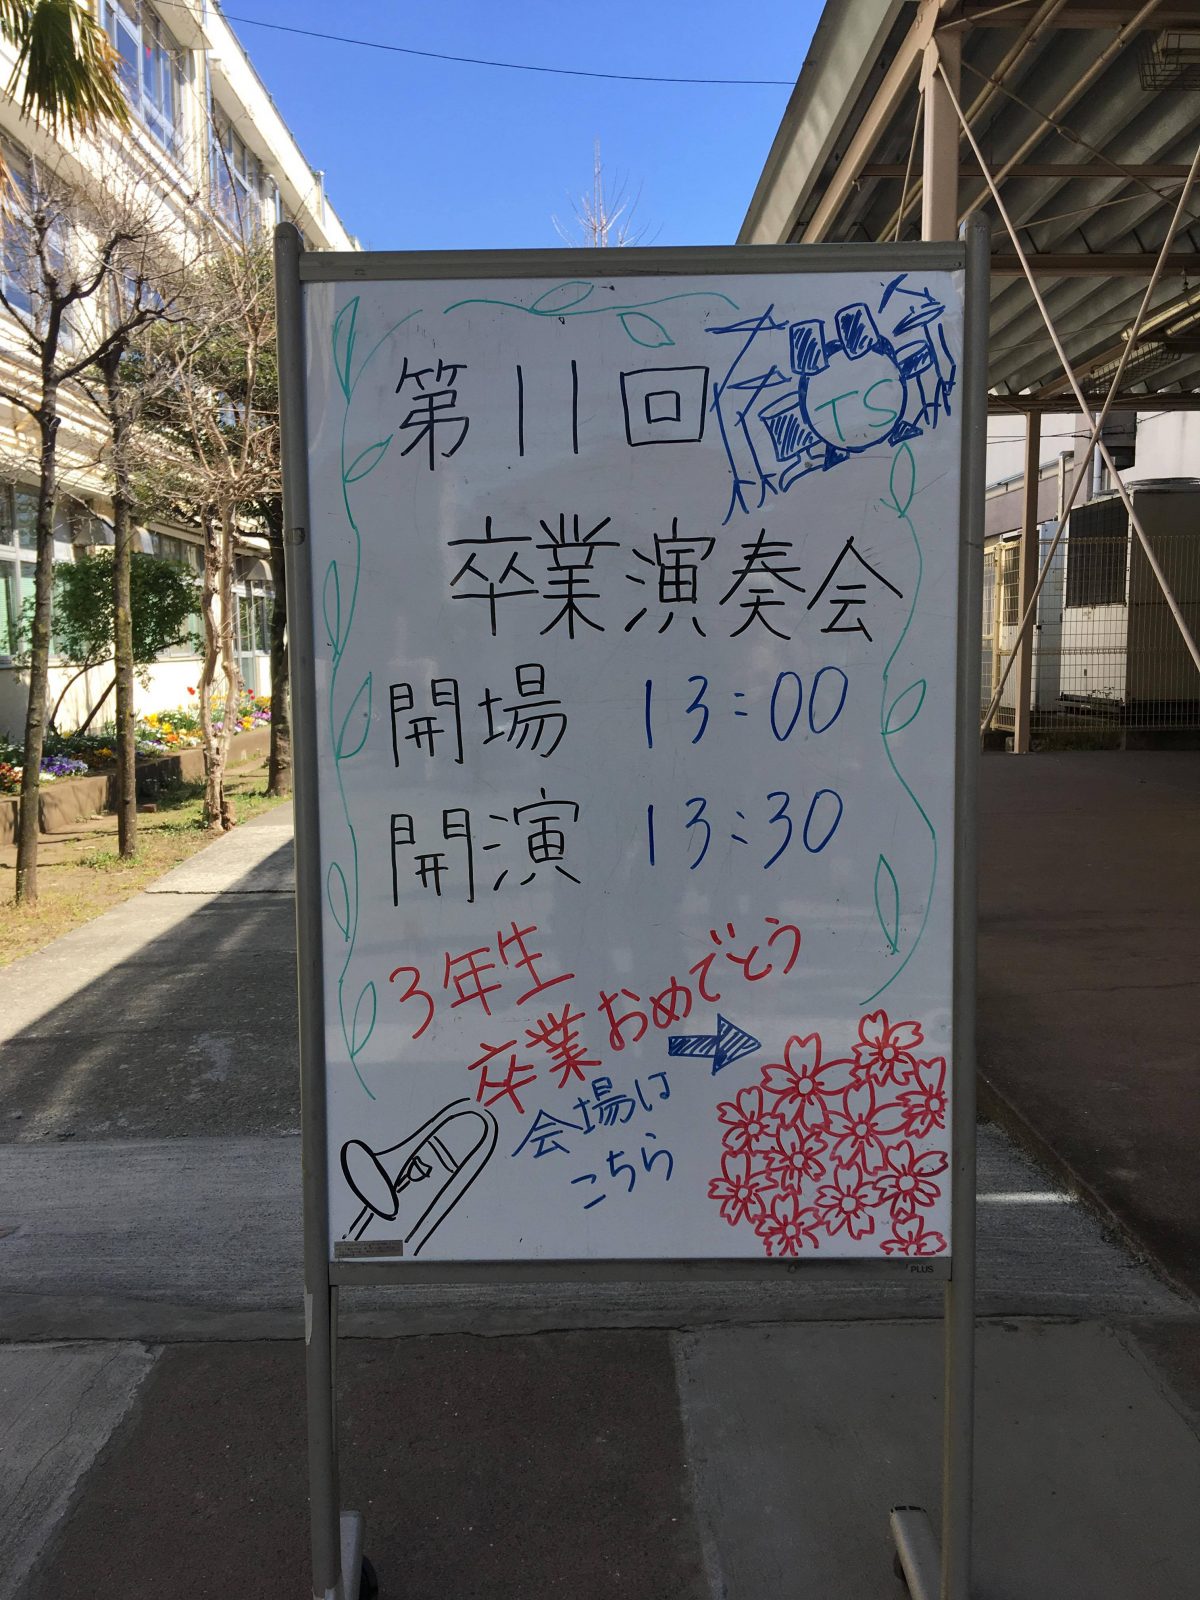 第11回
TS
卒業演奏会
開場 13:00
開演 13:30
3年生
卒業おめでとう
会場は
こちら
PLUS